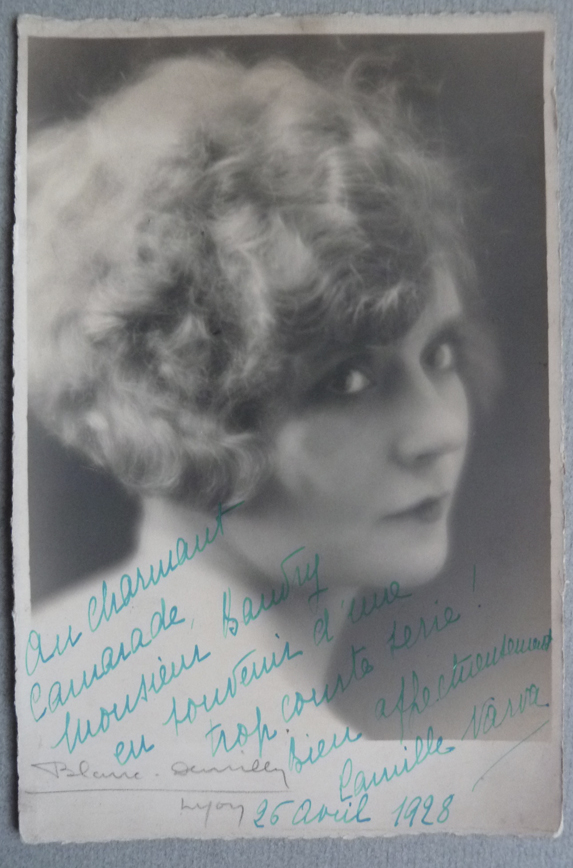 Au charmant
Camarade,
Monsieur Baudry
en souvenir d'une
trop courte serie !
bien affectueusement
Camille Varva
Blanc. Demilly
Lyon
26 avril 1928